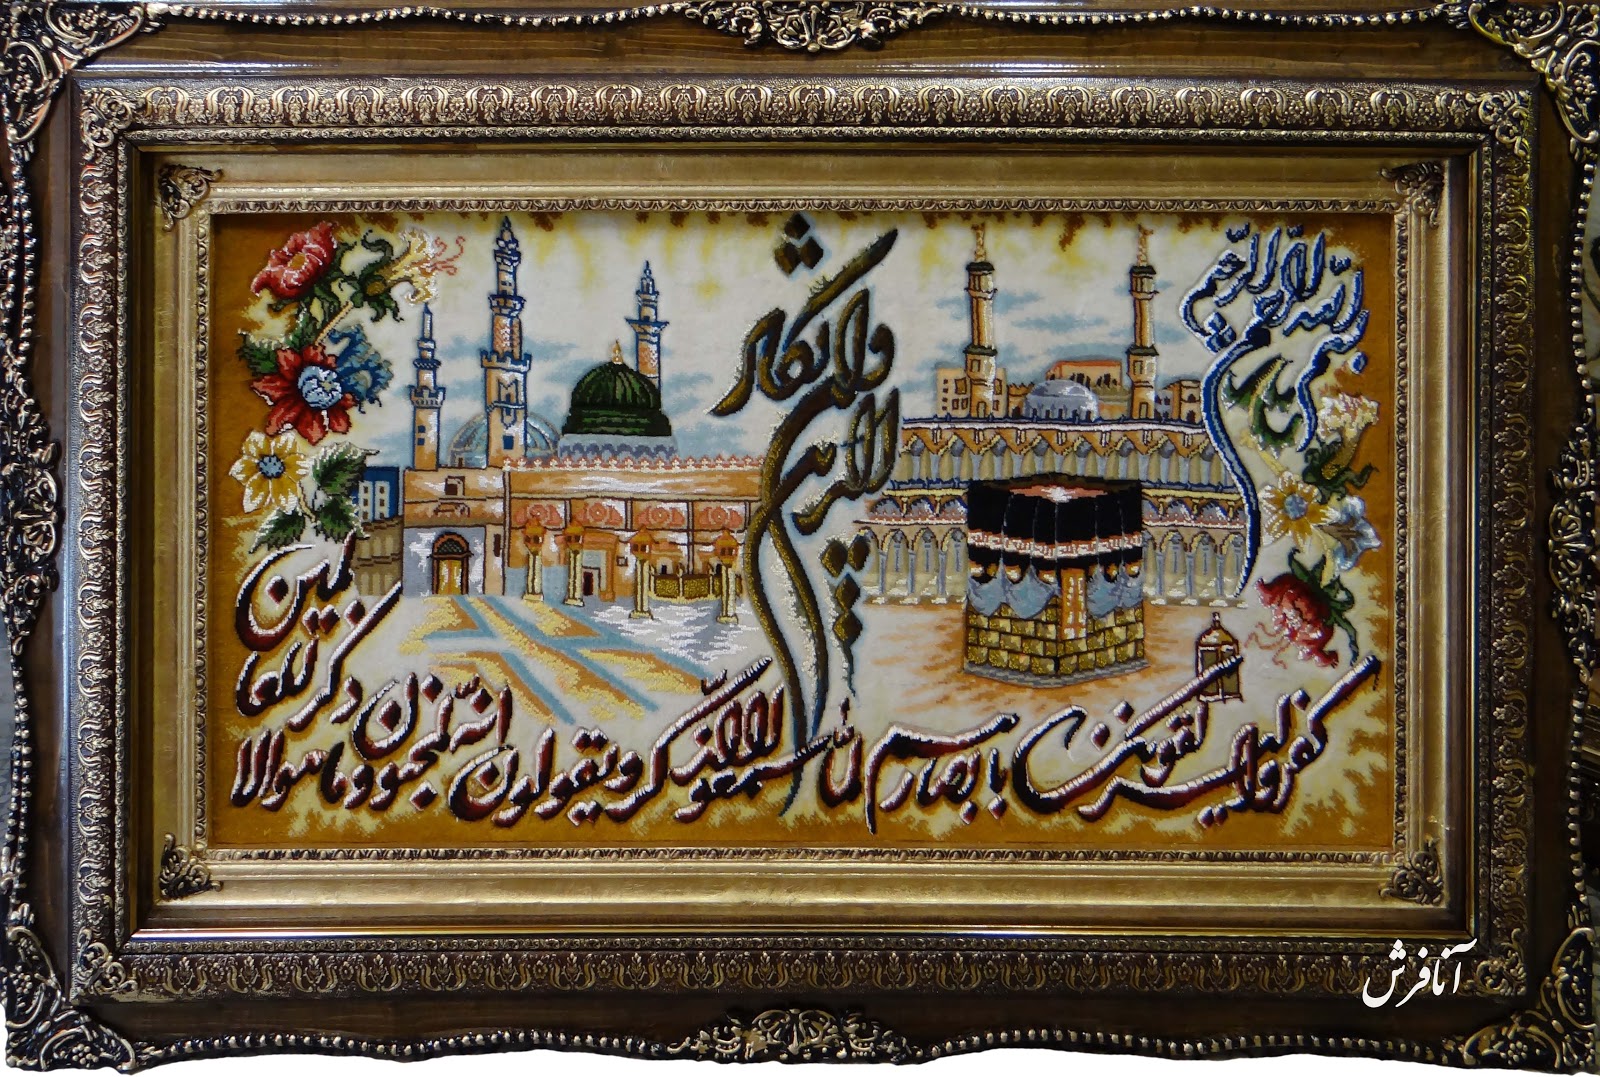 بسم الله الرحمن الرحیم
وان یکاد
الذین
کفروا لیزلقونک بابصارهم لما سمعوا الذکر و یقولون انه لمجنون و ما هو الا
ذکر للعالمین
آنافرش